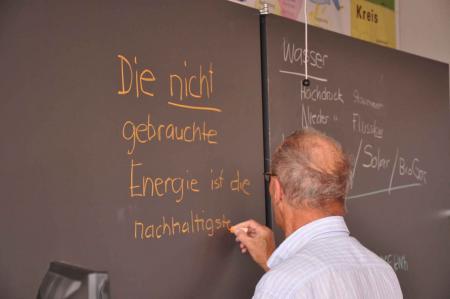 Die nicht
gebrauchte
Energie ist die
nachhaltigste
Kreis
Wasser
Hochdruck
Nieder "
Solar / BioGas